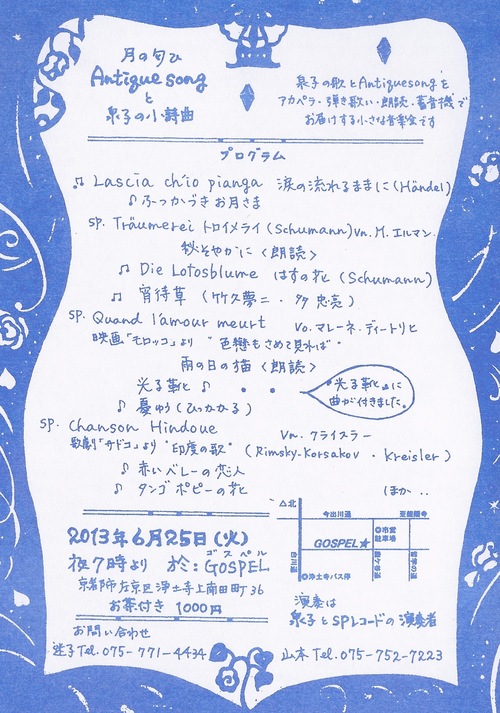 月の匂ひ
Antique song
と
泉子の小詩曲
泉子の歌とAntiquesongを
アカペラ・弾き歌い・朗読・蓄音機で
お届けする小さな音楽会です
プログラム
♫ Lascia ch'io pianga 涙の流れるままに (Händel)
♪ ふつかづき お月さま
SP. Träumerei トロイメライ (Schumann) vn. M. エルマン
秋そやかに〈朗読〉
♫ Die Lotosblume はすの花 (Schumann)
♫ 宵待草 (竹久夢二・多 忠亮)
SP. Quand l'amour meurt Vo. マレーネ・ディートリヒ
映画「モロッコ」より "色戀もさめて見れば"
雨の日の猫〈朗読〉
光る靴と ♪ ・・
"光る靴と"に
曲が付きました。
♪ 憂ゆう (ひっかかる)
SP. Chanson Hindoue Vn. クライスラー
歌劇「サドコ」より "印度の歌" (Rimsky-Korsakov・Kreisler)
♪ 赤いベレーの恋人
♪ タンゴ ポピーの花
ほか・・
2013年6月25日(火)
夜7時より 於:GOSPEL
ゴスペル
京都市左京区浄土寺上南田町36
お茶付き 1000円
△北
今出川通
至銀閣寺
◎市営
駐車場
GOSPEL★
白川通
◎浄土寺バス停
哲学の道
演奏は
泉子とSPレコードの演奏者
お問い合わせ
迷子Tel.075-771-4434
山本Tel.075-752-7223